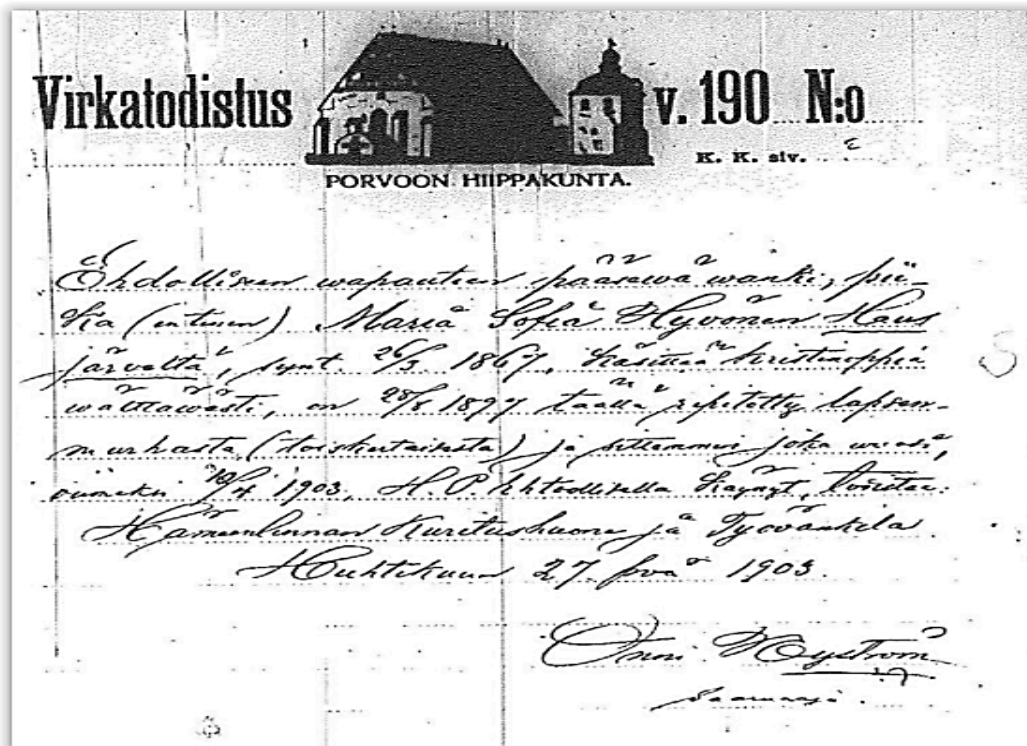 Virkatodistus v. 190 N:o
K. K. siv.
PORVOON HIIPPAKUNTA.
Ehdolliseen wapauteen pääsewä wanki, pii-
ka (entinen) Maria Sofia Hyvönen Haus
järveltä, synt. 26/3 1867, käsittää kristinoppia
wälttäwästi, on 28/8 1897 täällä ripitetty lapsen-
murhasta (toiskertaisesta) ja sittemmin joka vuosi,
viimeksi 10/4 1903, H. P. Ehtoollisella käynyt, todistaa
Hämeenlinnan Kuritushuone ja Työvankila
Huhtikuun 27 pvä 1903.
Onni Nyström
saarnaaja.